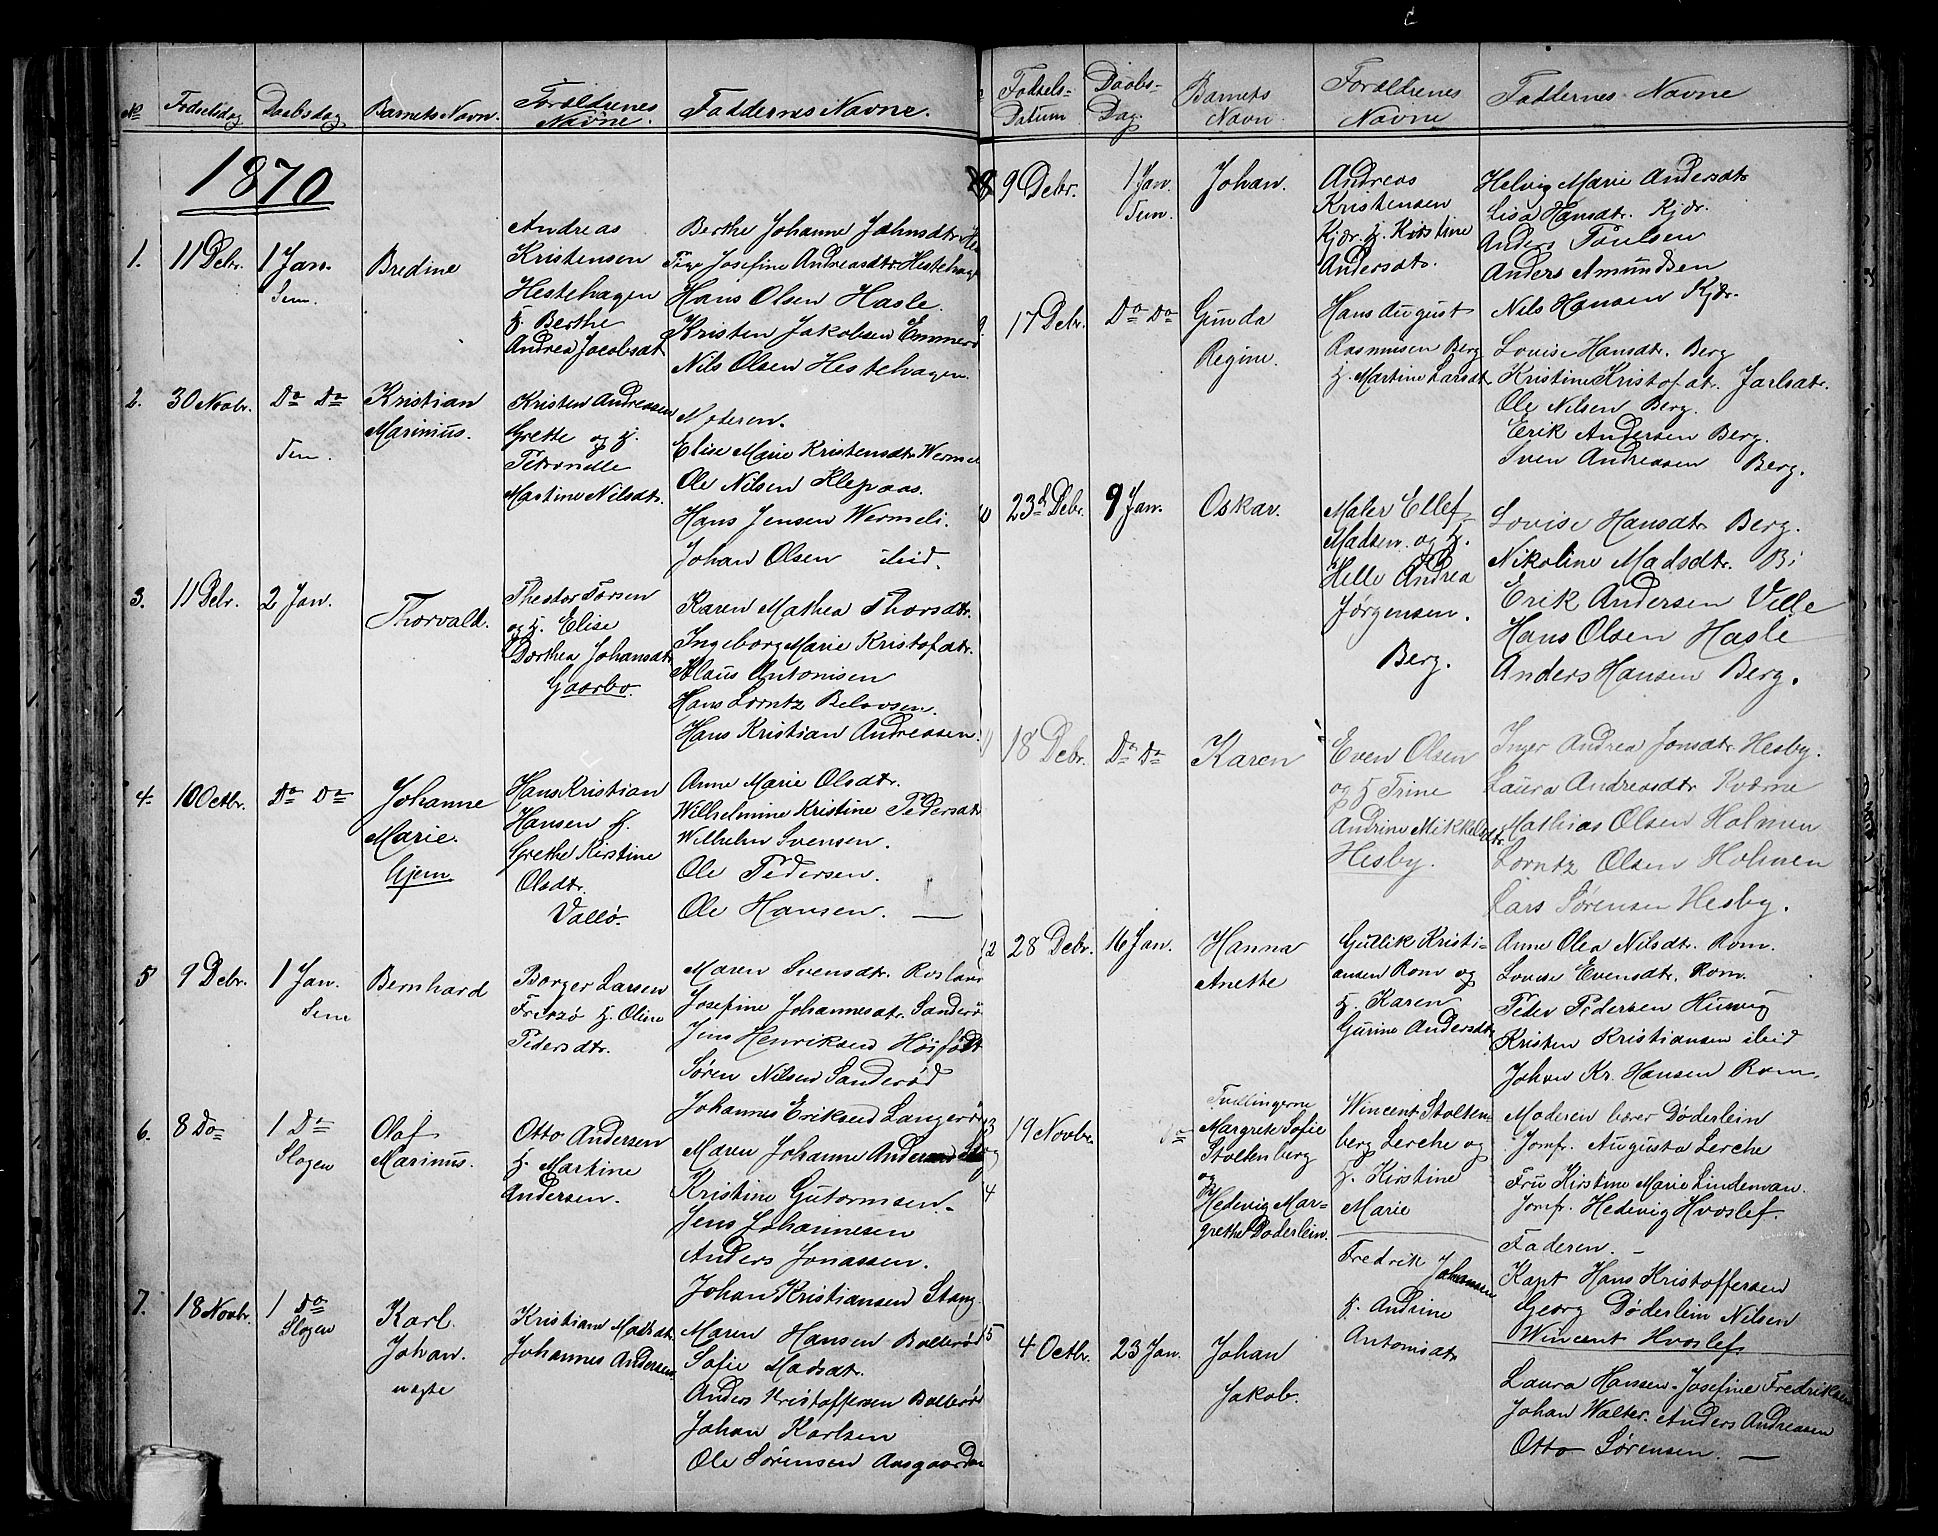 No
Fødselsdag
Daabsdag
Barnets Navn.
Forældrenes
Navne.
Faddernes Navne.
1870
1.
11 Debr.
1 Jan.
Sem.
Bredine
Andreas
Kristensen
Hestehagen
H. Berthe
Andrea Jacobsdt
Berthe Johanne Jahnsdtr
Josefine Andreasdtr Hestehage
Hans Olsen Hasle.
Kristen Jakobsen Emmerø
Nils Olsen Hestehagen.
2.
30 Novbr.
Do Do
Sem.
Kristian
Marinius.
Kristen Andreasen
Grette og H.
Petronelle
Martine Nilsdtr.
Moderen.
Elise Marie Kristensdtr Wermel
Ole Nilsen Klepaas.
Hans Jensen Wermeli.
Johan Olsen ibid.
3.
11 Debr.
2 Jan.
Thorvald.
Thestor Torsen
og H. Elise
Dorthea Johansdtr
Gaarbo.
Karen Mathea Thorsdtr.
Ingeborg Marie Kristofdtr.
Klaus Antonisen
Hans Lorntz Belovsen.
Hans Kristian Andreasen.
4.
10 Octbr.
Do Do
Johanne
Marie.
hjem
Hans Kristian
Hansen H.
Grethe Kirstine
Olsdtr.
Vallø.
Anne Marie Olsdtr.
Wilhelmine Kristine Pedersdtr
Wilhelm Svensen.
Ole Pedersen.
Ole Hansen. —
5
9 Debr.
1 Jan.
Sem
Bernhard
Borger Larsen
Freszø H. Oline
Pedersdtr.
Maren Svensdtr. Roslan
Josefine Johannesdtr. Sanderø
Jens Henriksen Høifødt
Søren Nilsen Sanderød
Johannes Eriksen Langerø
6.
8 Do
1 Do
Slagen
Olaf
Marinus.
Otto Andersen
H. Martine
Andersen.
Maren Johanne Andersen
Kristine Gutormsen.
Jens Johannesen
Anders Jonassen.
Johan Kristiansen Stang.
7.
18 Novbr.
1 Do
Slagen
Karl
Johan.
uægte
Kristiane Madsdt
Johannes Andersen
Maren Hansen Bolterød
Sofie Madsdt.
Anders Kristoffersen Bolterød
Johan Karlsen
Ole Sørensen Aasgaarden
Fødsels-
Datum
Daabs-
Dag.
Barnets
Navn.
Forældrenes
Navne
Faddernes Navne
8
9 Debr.
1 Jan.
Sem.
Johan.
Andreas
Kristensen
Kjær. H. Kirstine
Andersdtr.
Helvig Marie Andersdtr
Lisa Hansdtr. Kjær.
Anders Poulsen
Anders Amundsen
Nils Hansen Kjær.
9.
17 Debr.
Do Do
Gunda
Regine.
Hans August
Rasmusen Berg
H. Martine Larsdt.
Lovise Hansdtr. Berg
Kristine Kristofdtr. Jarlsdtr.
Ole Nilsen Berg.
Erik Andersen Berg.
Sven Andreasen Berg.
10
23d Debr.
9 Jan.
Oskar.
Maler Ellef
Madsen og H.
Helle Andrea
Jørgensen.
Berg.
Lovise Hansdtr Berg.
Nikoline Madsdtr.
Erik Andersen Ville
Hans Olsen Hasle
Anders Hansen Berg.
11
18 Debr.
Do Do
Karen
Even Olsen
og H Trine
Andrine Mikkelsdtr.
Hesby.
Inger Andrea Jonsdtr. Hesby.
Laura Andreasdtr Kværne
Mathias Olsen Holmen
Lorntz Olsen Holmen
Lars Sørensen Hesby.
12
28 Debr.
16 Jan.
Hanna
Anette
Gullik Kristi-
ansen Rom og
H. Karen
Gurine Andersdtr
Anne Olea Nilsdtr. Rom.
Lovise Evensdtr. Rom.
Peder Pedersen Husvig
Kristen Kristiansen ibid
Johan Kr. Hansen Rom.
13
og
4
19 Novbr.
Do
Tvillingerne
Margrete Sofie
Stoltenberg
og
Hedevig Mar-
grethe Døderlein.
Wincent Stolten-
berg Lerche og
H. Kirstine
Marie
Moderen bærer Døderlein
Jomfr. Augusta Lerche
Fru Kirstine Marie Lindeman.
Jomfr. Hedevig Hvoslef.
Faderen. —
Kapt Hans Kristoffersen
Georg Døderlein Nilsen
Wincent Hvoslef.
15
4 Octbr.
23 Jan.
Johan
Jakob.
Fredrik Johansen
H. Andrine
Antonisdtr
Laura Hansen. Josefine Fredriksen
Johan Walter. Anders Andreasen
Otto Sørensen. —